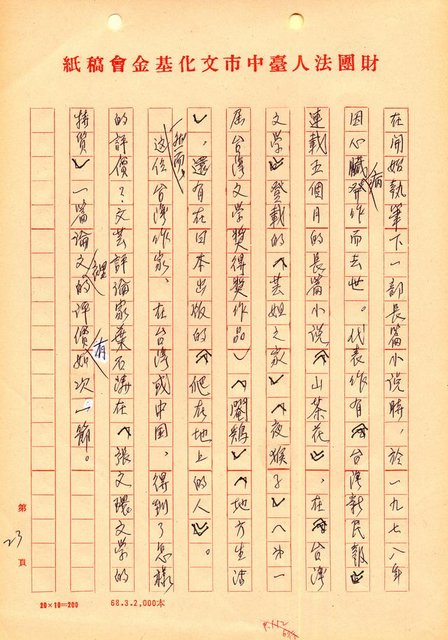 財團法人臺中市文化基金會稿紙
在開始執筆下一部長篇小說時，於一九七八年
因心臟病發作而去世。代表作有︽台灣新民報︾
連載五個月的長篇小說︿山茶花﹀，在︽台灣
文學︾登載的︿芸妲之家﹀︿夜猴子﹀（第一
屆台灣文學獎得獎作品）︿閹鷄﹀︿地方生活
﹀，還有在日本出版的︽爬在地上的人︾。
然而，這位台灣作家、在台灣或中國，得到了怎樣
的評價？文芸評論家葉石濤在︿張文環文學的
特質﹀一篇論文裡的評價有如次一節。
第 23 頁
20×10=200
68.3.2,000本